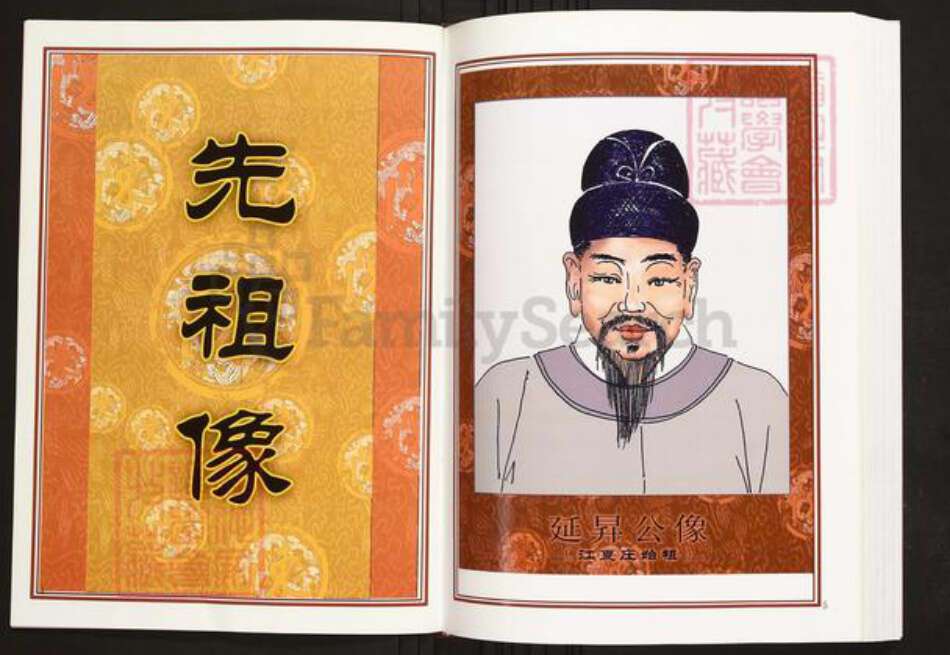 先祖像
FamilySearch
延昇公像
江夏庄始祖